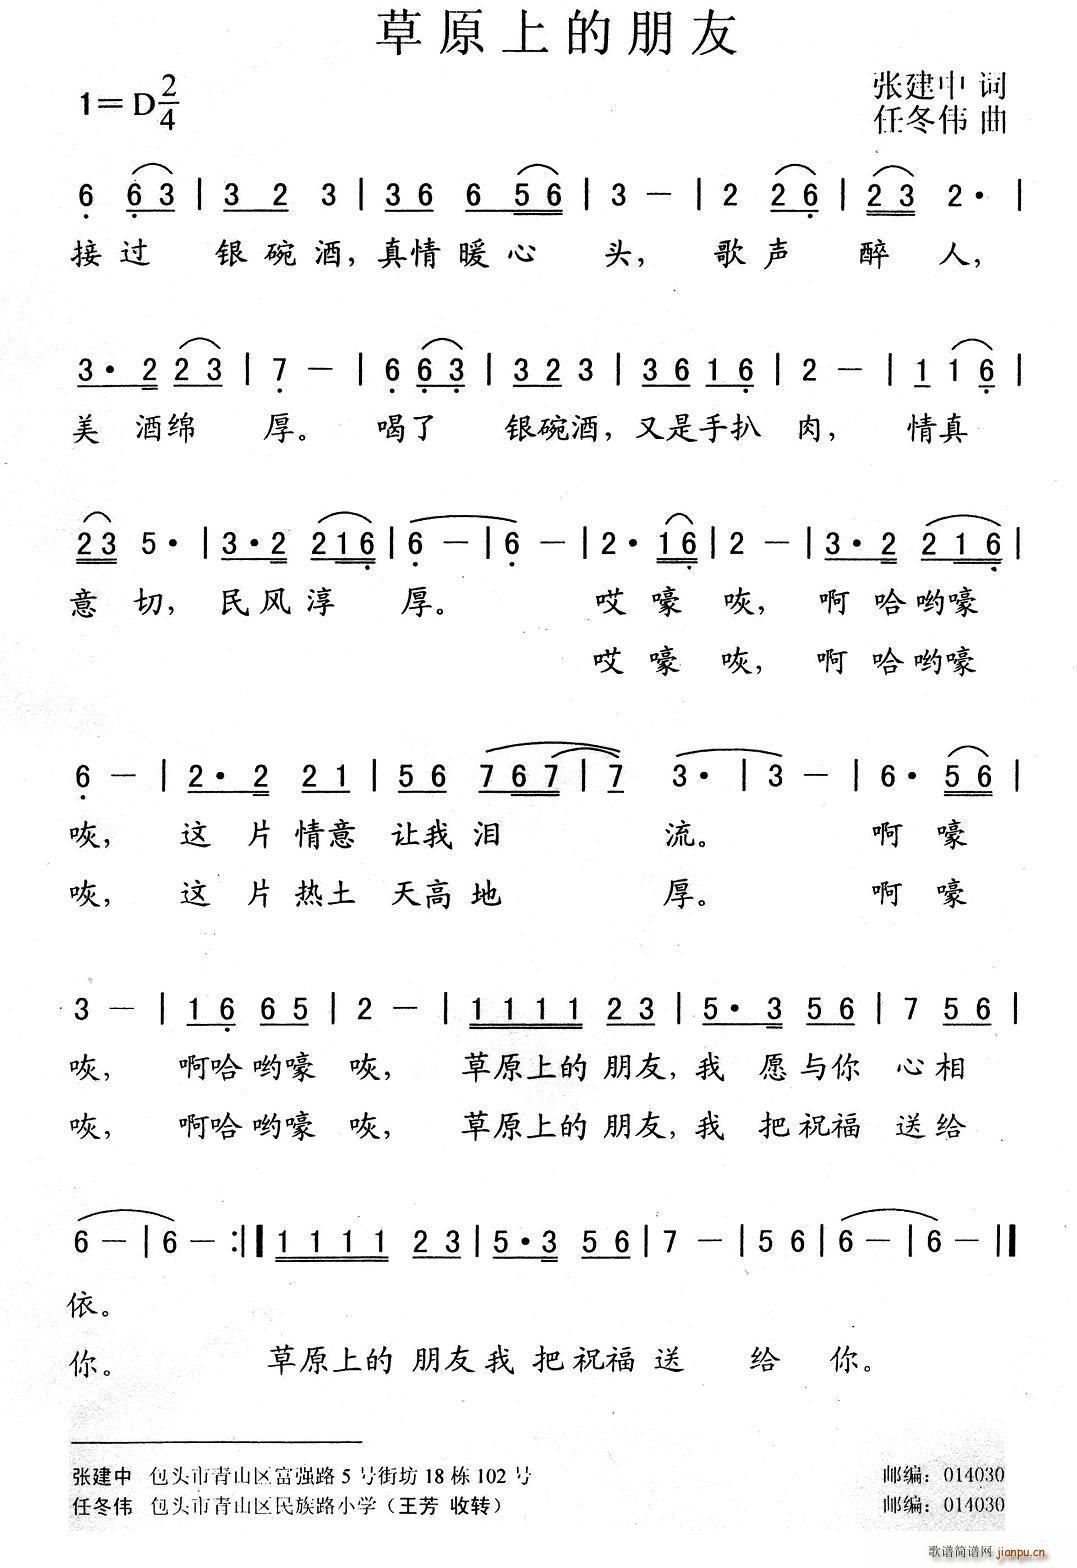 草原上的朋友
1=D 2/4
张建中 词
任冬伟 曲
6 6 3 | 3 2 3 | 3 6 6 5 6 | 3 － | 2 2 6 | 2 3 2· |
接过 银碗酒，真情暖心 头，歌声 醉 人，
3· 2 2 3 | 7 － | 6 6 3 | 3 2 3 | 3 6 1 6 | 2 － | 1 1 6 |
美 酒绵 厚。 喝了 银碗酒，又是手扒 肉， 情真
2 3 5· | 3· 2 2 1 6 | 6 － | 6 － | 2· 1 6 | 2 － | 3· 2 2 1 6 |
意 切，民风淳 厚。 哎嚎 咴，啊 哈哟嚎
哎嚎 咴，啊 哈哟嚎
6 － | 2· 2 2 1 | 5 6 7 6 7 | 7 3· | 3 － | 6· 5 6 |
咴， 这 片 情意 让我 泪 流。 啊 嚎
咴， 这 片 热土 天高 地 厚。 啊 嚎
3 － | 1 6 6 5 | 2 － | 1 1 1 1 2 3 | 5· 3 5 6 | 7 5 6 |
咴， 啊哈 哟嚎 咴， 草原上的 朋友，我 愿与你 心相
咴， 啊哈 哟嚎 咴， 草原上的 朋友，我 把祝福 送给
6 － | 6 － :‖ 1 1 1 1 2 3 | 5· 3 5 6 | 7 － | 5 6 | 6 － | 6 － ‖
依。
你。 草原上的 朋友我 把祝福 送 给 你。
张建中 包头市青山区富强路 5 号街坊 18 栋 102 号 邮编：014030
任冬伟 包头市青山区民族路小学（王芳 收转） 邮编：014030
歌谱简谱网 jianpu.cn